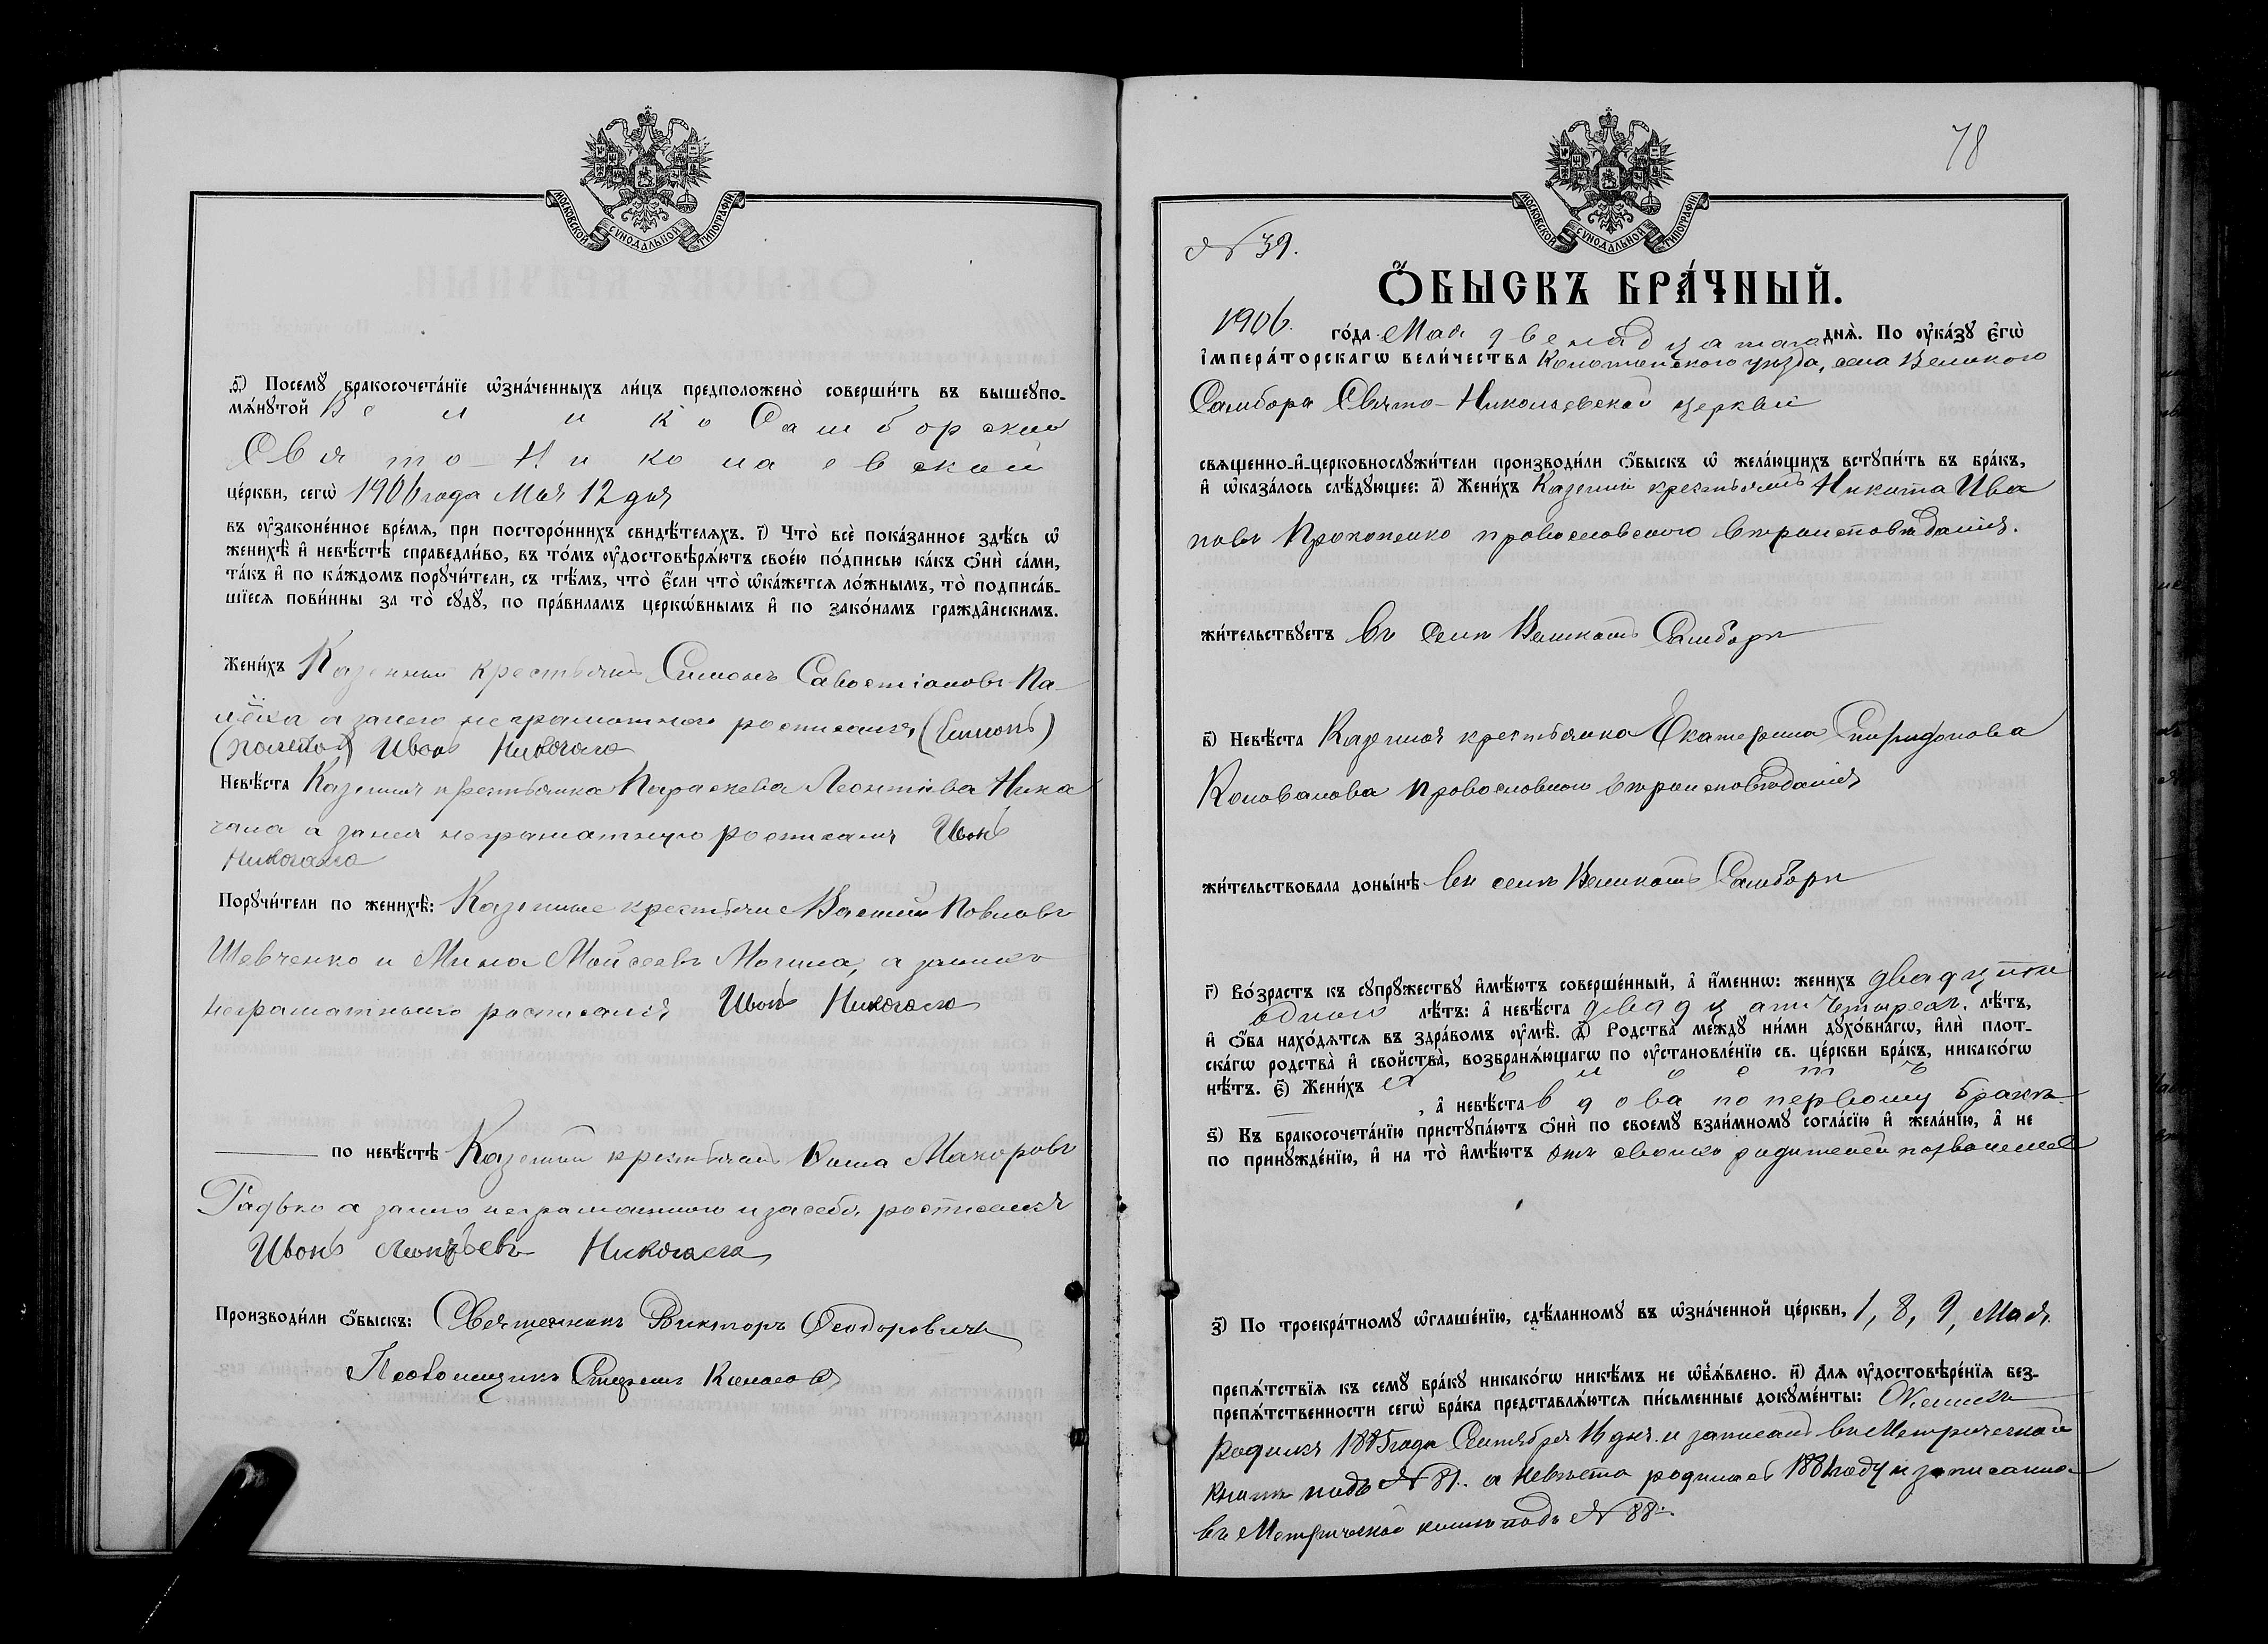 МОСКОВСКОЙ СУНОДАЛЬНОЙ ТИПОГРАФІИ.
ѳ҃) Посемꙋ̀ бракосочета́нїе ѡ҆зна́ченныхъ ли́цъ предположено̀ соверши́ть въ вышеꙋпо-
мѧ́нꙋтой Велико Самборской
Свято-Николаевской
це́ркви, сегѡ̀ 1906 года Мая 12 дня
въ ᲂу҆законе́нное вре́мѧ, при посторо́ннихъ свидѣ́телѧхъ. і҃) Что̀ всѐ пока́занное здѣ́сь ѡ҆
женихѣ̀ и҆ невѣ́стѣ справедли́во, въ то́мъ ᲂу҆достовѣрѧ́ютъ свое́ю по́дписью ка́къ ѻ҆нѝ са́ми,
та́къ и҆ по ка́ждомъ порꙋчи́тели, съ тѣ́мъ, что̀ є҆́сли что̀ ѡ҆ка́жетсѧ ло́жнымъ, то̀ подписа́в-
шїесѧ пови́нны за то̀ сꙋдꙋ̀, по пра́виламъ церко́внымъ и҆ по зако́намъ гражда̂нскимъ.
Жени́хъ Казенный крестьянинъ Симонъ Савостіановъ Па-
лёха а за него неграмотного росписался (Симонъ)
Ивонъ Никогало
Невѣ́ста Казенная крестьянка Параскева Леонтіева Ника
гала а за нея неграматную росписался Ивонъ
Никогало
Порꙋчи́тели по женихѣ̀: Казенные крестьяне Василій Повловъ
Шевченко и Мина Мойсеевъ Могила, а за них
неграматныхъ росписался Ивонъ Никогало
по невѣ́стѣ Казенный крестьянинъ Макаровъ
Гадько а за него неграматного и за себя росписался
Ивонъ Леонтьевъ Никогало
Производи́ли ѻ҆́быскъ: Священникъ Викторъ Ѳеодоровичъ
Псаломщикъ
78
МОСКОВСКОЙ СУНОДАЛЬНОЙ ТИПОГРАФІИ.
№ 39.
Ѻ҆́БЫСКЪ БРА́ЧНЫЙ.
1906. го́да Мая двенадцатаго днѧ̀. По ᲂу҆ка́зꙋ Є҆гѡ̀
І҆мпера́торскагѡ вели́чества Конотопского уезда, села Великого
Самбора Свято-Николаевской церкви
свѧщенно-и҆-церковнослꙋжи́тели производи́ли ѻ҆́быскъ ѡ҆ жела́ющихъ встꙋпи́ть въ бра́къ,
и҆ ѡ҆каза́лось слѣ́дꙋющее: а҃) Жени́хъ Казенный крестьянинъ Никита Ива
новъ Прокопенко провословного вероисповедания.
жи́тельствꙋетъ въ селе Великомъ Самборе
в҃) Невѣ́ста Казенная крестьянка Екатерина Спиридонова
Коновалова провословного вероисповедания
жи́тельствовала доны́нѣ въ селе Великомъ Самборе
г҃) Во́зрастъ къ сꙋпрꙋ́жествꙋ и҆мѣ́ютъ соверше́нный, а҆ и҆́меннѡ: жени́хъ двадцати
одного лѣ́тъ: а҆ невѣ́ста двадцати четырех. лѣ́тъ,
и҆ ѻ҆́ба нахо́дѧтсѧ въ здра́вомъ ᲂу҆мѣ̀. д҃) Родства̀ междꙋ̀ ни́ми дꙋхо́внагѡ, и҆лѝ плот-
ска́гѡ родства̀ и҆ свойства̀, возбранѧ́ющагѡ по ᲂу҆становле́нїю св. це́ркви бра́къ, никако́гѡ
нѣ́тъ. є҃) Жени́хъ холостъ
, а҆ невѣ́ста вдова по первому браке.
ѕ҃) Къ бракосочета́нїю пристꙋпа́ютъ ѻ҆нѝ по своемꙋ̀ взаи́мномꙋ согла́сїю и҆ жела́нїю, а҆ не
по принꙋжде́нїю, и҆ на то̀ и҆мѣ́ютъ от своихъ родителей позволение
з҃) По троекра́тномꙋ ѡ҆глаше́нїю, сдѣ́ланномꙋ въ ѡ҆зна́ченной це́ркви, 1, 8, 9, Мая.
препѧ́тствїѧ къ семꙋ̀ бра́кꙋ никако́гѡ никѣ́мъ не ѡ҆б̾ѧ́влено. и҃) Длѧ ᲂу҆достовѣре́нїѧ без-
препѧ́тственности сегѡ̀ бра́ка представлѧ́ютсѧ пи́сьменные докꙋме́нты: Женихъ
родился 1885 года Сентября 16 дня. и записанъ въ Метрической
книге подъ № 81. а невеста родилась 1881 году и записанна
въ Метрической книге подъ № 88.